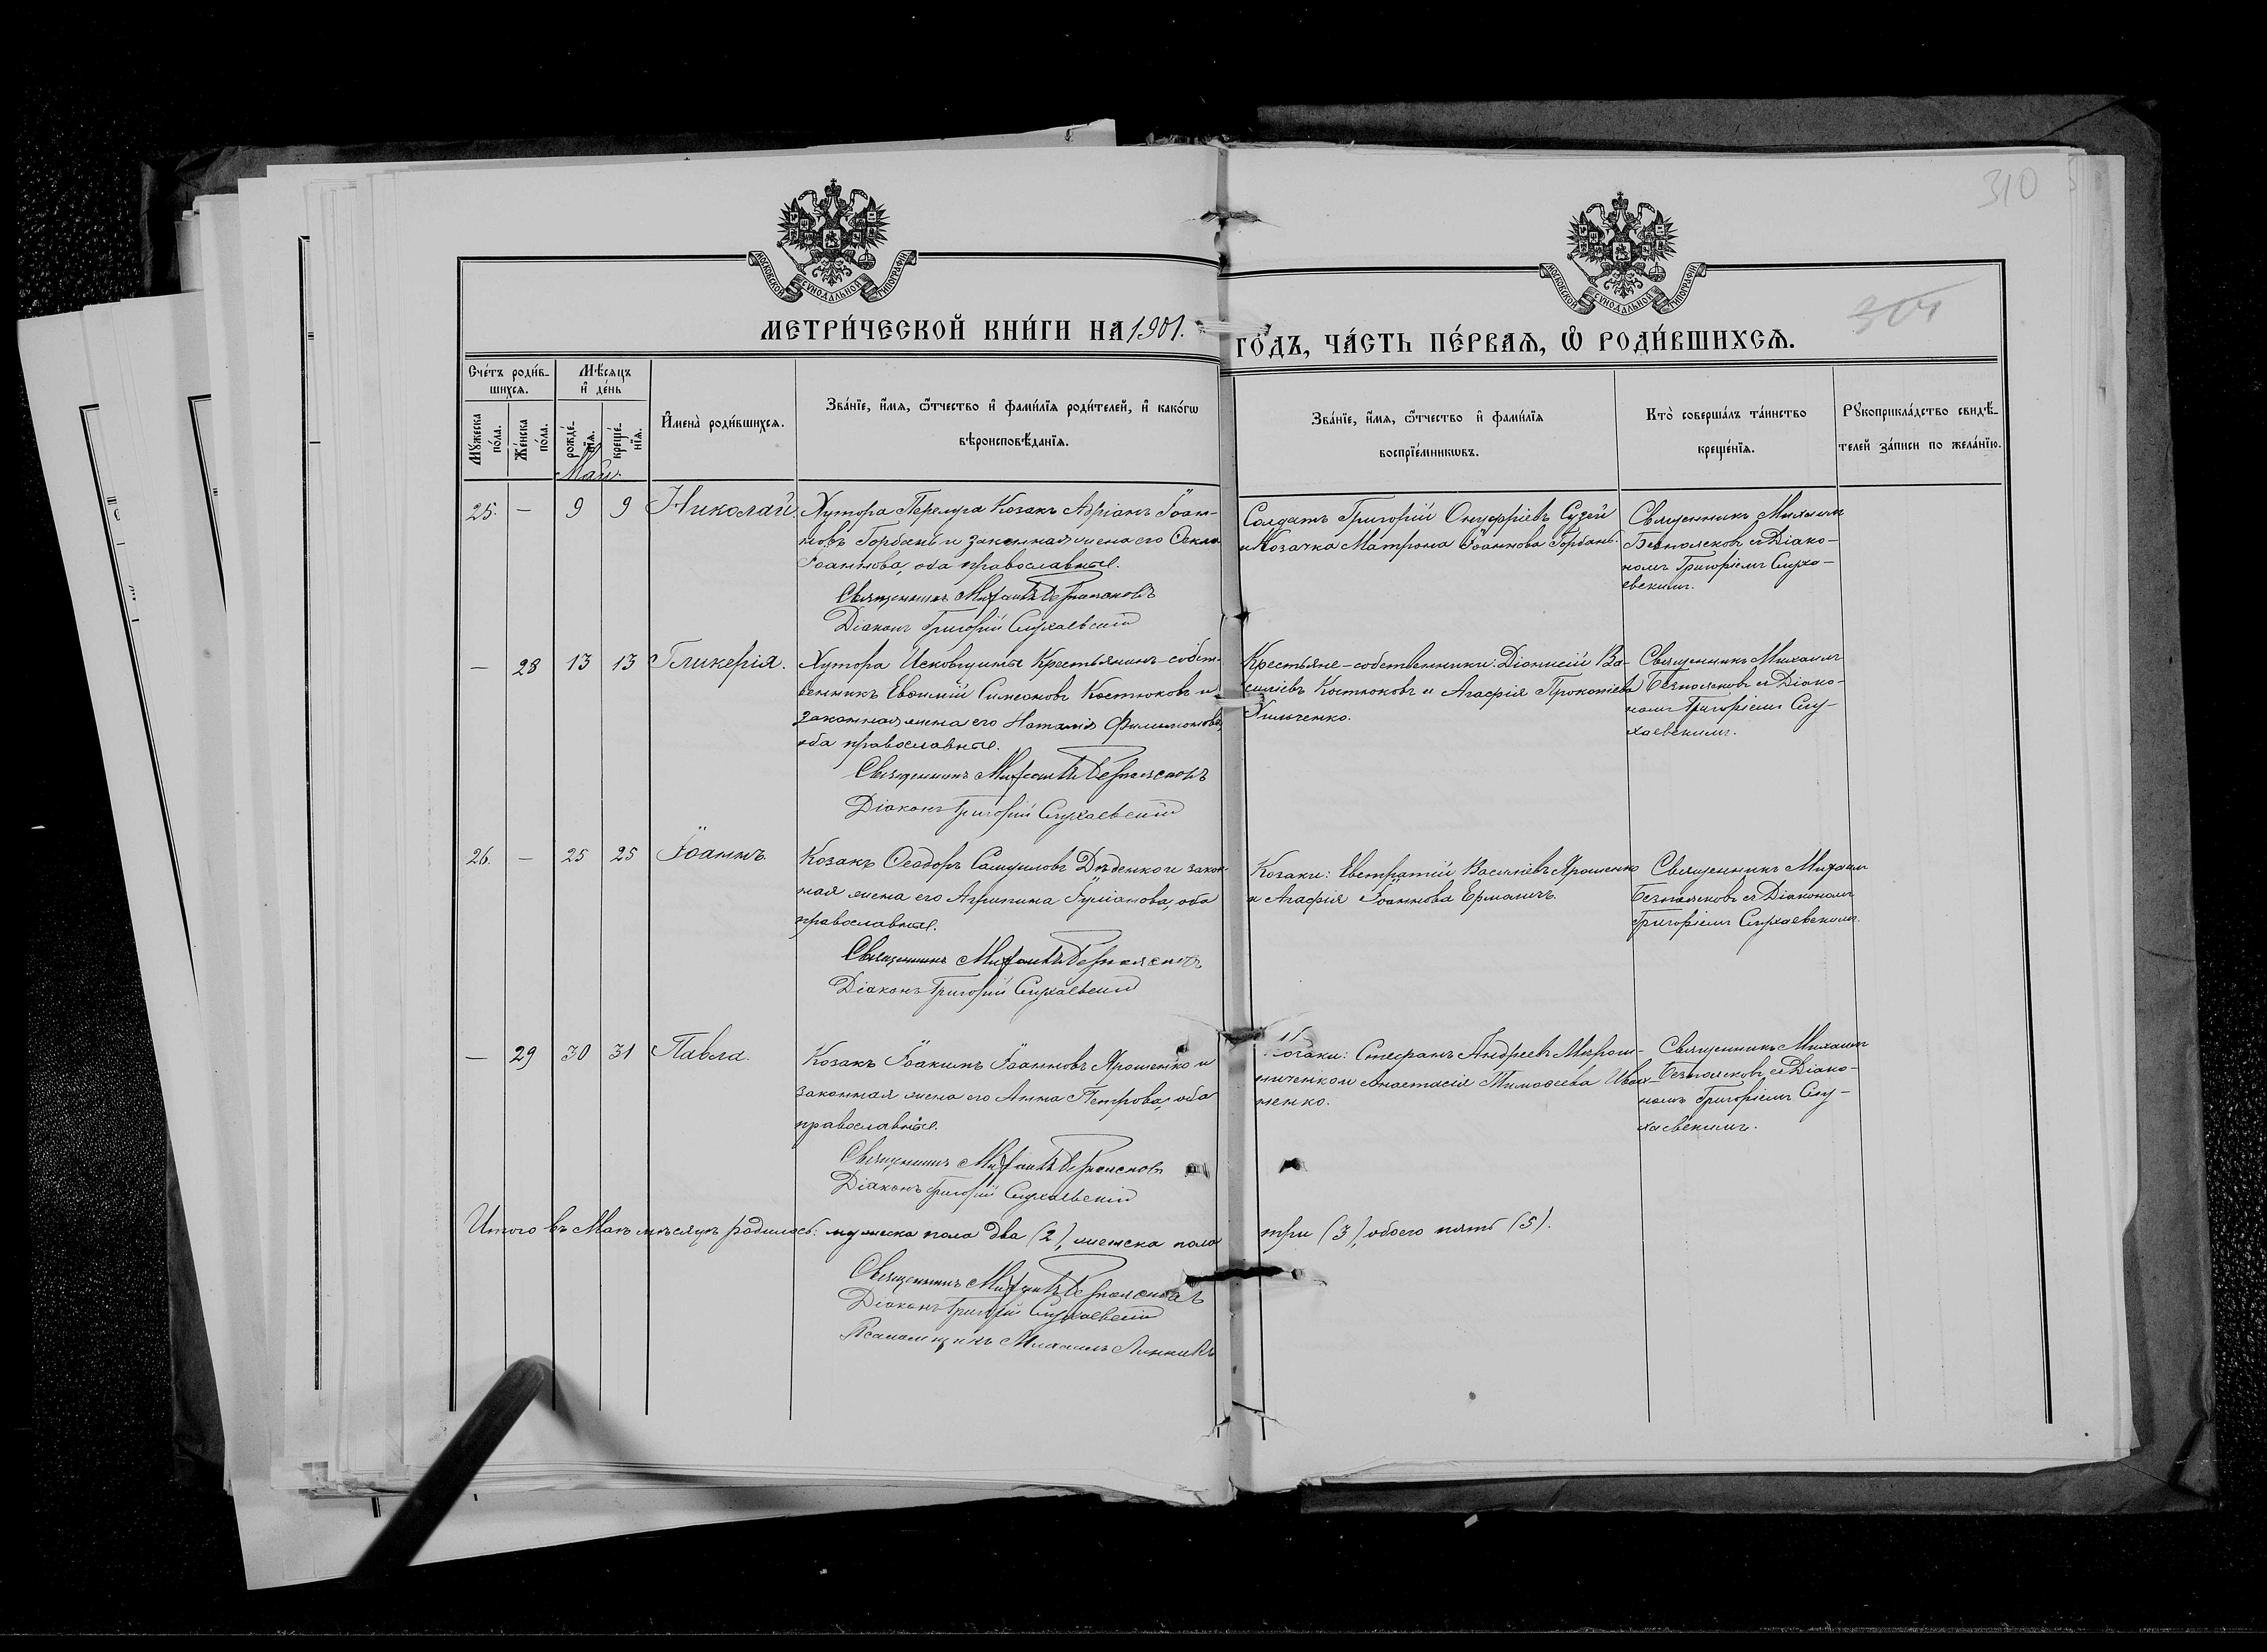 310
МОСКОВСКОЙ СѴНОДАЛЬНОЙ ТИПОГРАФІИ
МОСКОВСКОЙ СѴНОДАЛЬНОЙ ТИПОГРАФІИ
304
МЕТРИ́ЧЕСКОЙ КНИ́ГИ НА 1901. ГО́ДЪ, ЧА́СТЬ ПЕ́РВАѦ, Ѡ҆ РОДИ́ВШИХСѦ.
Сче́тъ роди́в-
шихсѧ.
Мѣ́сяцъ
и҆ де́нь
Мꙋжеска по́ла.
Же́нска по́ла.
рожде́-нїѧ.
креще́-нїѧ.
И҆мена̀ роди́вшихсѧ.
Зва́нїе, и҆́мѧ, ѻ҆́тчество и҆ фами́лїѧ роди́телей, и҆ како́гѡ
вѣроисповѣ́данїѧ.
Зва́нїе, и҆́мѧ, ѻ҆́тчество и҆ фами́лїѧ
воспрїе́мникѡвъ.
Кто̀ соверша́лъ та́инство
креще́нїѧ.
Рꙋкоприкла́дство свидѣ́-
телей за́писи по жела́нїю.
Май.
25. — 9 9 Николай. Хутора Перелуга Козакъ Адріанъ Іоан-
новъ Горбань и законная жена его Ѳекла
Іоаннова, оба православные.
Священникъ Михаилъ Безпоясковъ
Діаконъ Григорій Слухаевскій
Солдатъ Григорій Онуфріевъ Сузей
и Козачка Матрона Іоаннова Горбань.
Священникъ Михаилъ
Безпоясковъ съ Діако-
номъ Григоріемъ Слуха-
евскимъ.
— 28 13 13 Гликерія. Хутора Исковщины Крестьянинъ-собст-
венникъ Евѳимій Симеоновъ Костюковъ и
законная жена его Наталія Филимонова,
оба православные.
Священникъ Михаилъ Безпоясковъ
Діаконъ Григорій Слухаевскій
Крестьяне-собственники: Діонисій Ва-
силіевъ Костюковъ и Агафія Прокопіева
Хильченко.
Священникъ Михаилъ
Безпоясковъ съ Діако-
номъ Григоріемъ Слу-
хаевскимъ.
26. — 25 25 Іоаннъ. Козакъ Ѳеодоръ Самуиловъ Дѣденко и закон-
ная жена его Агрипина Іуліанова, оба
православные.
Священникъ Михаилъ Безпоясковъ
Діаконъ Григорій Слухаевскій
Козаки: Евстратій Василіевъ Ярошенко
и Агафія Іоаннова Ермаличъ.
Священникъ Михаилъ
Безпоясковъ съ Діакономъ
Григоріемъ Слухаевскимъ.
— 29 30 31 Павла. Козакъ Іоакимъ Іоанновъ Ярошенко и
законная жена его Анна Петрова, оба
православные.
Священникъ Михаилъ Безпоясковъ
Діаконъ Григорій Слухаевскій
Козаки: Стефанъ Андреевъ Мирош-
ниченко и Анастасія Тимоѳеева Иван-
ненко.
Священникъ Михаилъ
Безпоясковъ съ Діако-
номъ Григоріемъ Слу-
хаевскимъ.
Итого въ Маѣ мѣсяцѣ родилось: мужеска пола два (2), женска пола три (3), обоего пять (5).
Священникъ Михаилъ Безпоясковъ
Діаконъ Григорій Слухаевскій
Псаломщикъ Михаилъ Линникъ